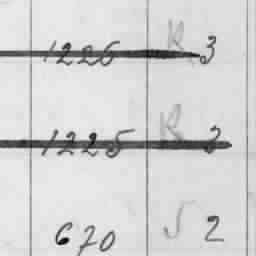 1226 R 3
1225 R 3
670 √ 2